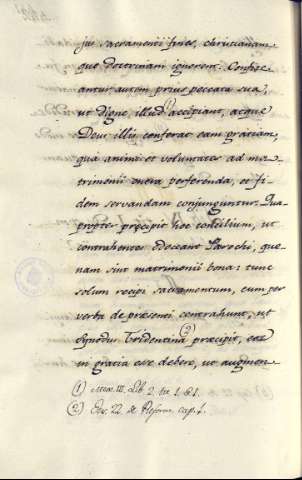 jus sacramenti fines, christianam
que doctrinam ignorent. Confite
antur autem prius peccata sua,
ut digne illud (1) accipiant, acque
Deus illis conferat eam gratiam,
qua animi et voluntates ad ma
trimonii onera perferenda, et fi
dem servandam conjunguntur. Qua
propter precipit hoc concilium, ut
contrahentes edoceant Parochi, que
nam sint matrimonii bona: tunc
solum recipi sacramentum, cum per
verba de præsenti contrahunt, ut
Synodus Tridentina (2) præcipit, eos
in gratia esse debere, ut augmen
(1) Mex. III. Lib. 2. tit. 1. § 1.
(2) Ses. 22 de Reform. cap. 1.